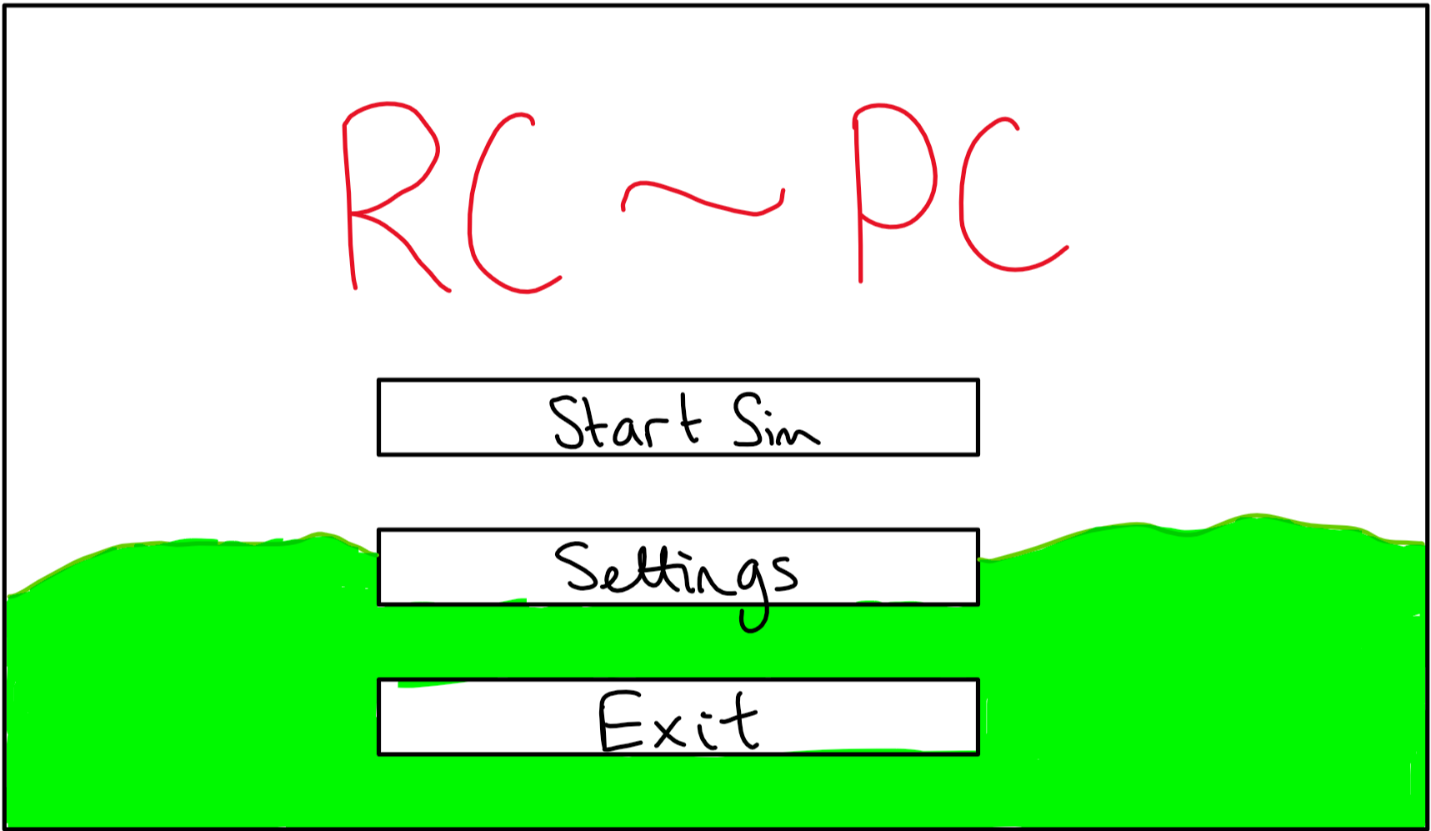 RC ~ PC
Start Sim
Settings
Exit